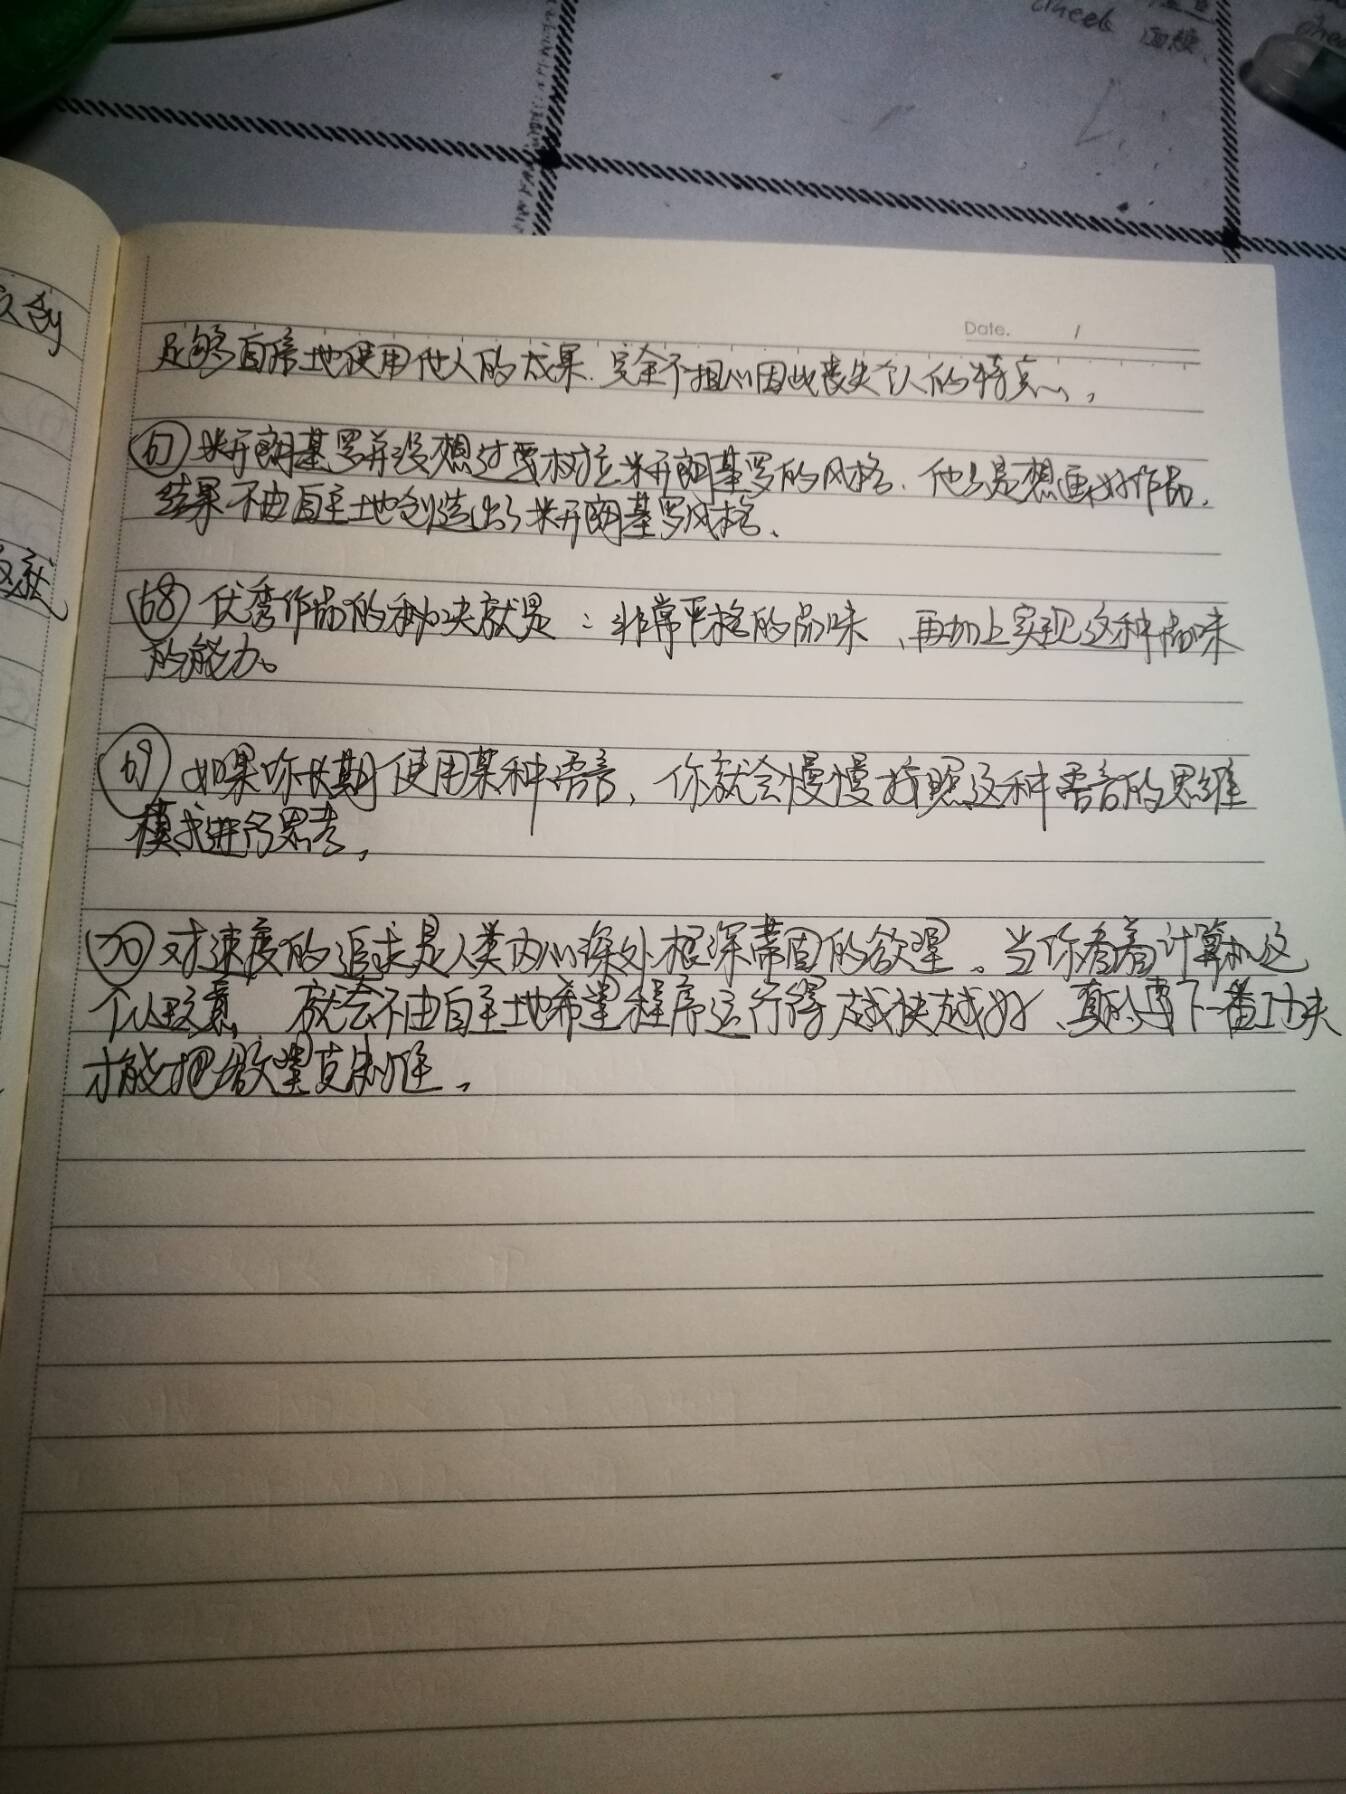 cheek 面颊
Date. /
足够自信地使用他人的成果.完全不担心因此丧失个人的特点,
67 米开朗基罗并没想过要树立米开朗基罗的风格.他只是想画好作品.
结果不由自主地创造出了米开朗基罗风格、
68 优秀作品的秘诀就是:非常严格的品味、再加上实现这种品味
的能力。
69 如果你长期使用某种语言,你就会慢慢按照这种语言的思维
模式进行思考,
70 对速度的追求是人类内心深处根深蒂固的欲望。当你看着计算机这
个 就会不由自主地希望程序运行得越快越好、真的要下一番功夫
才能把欲望克制住。